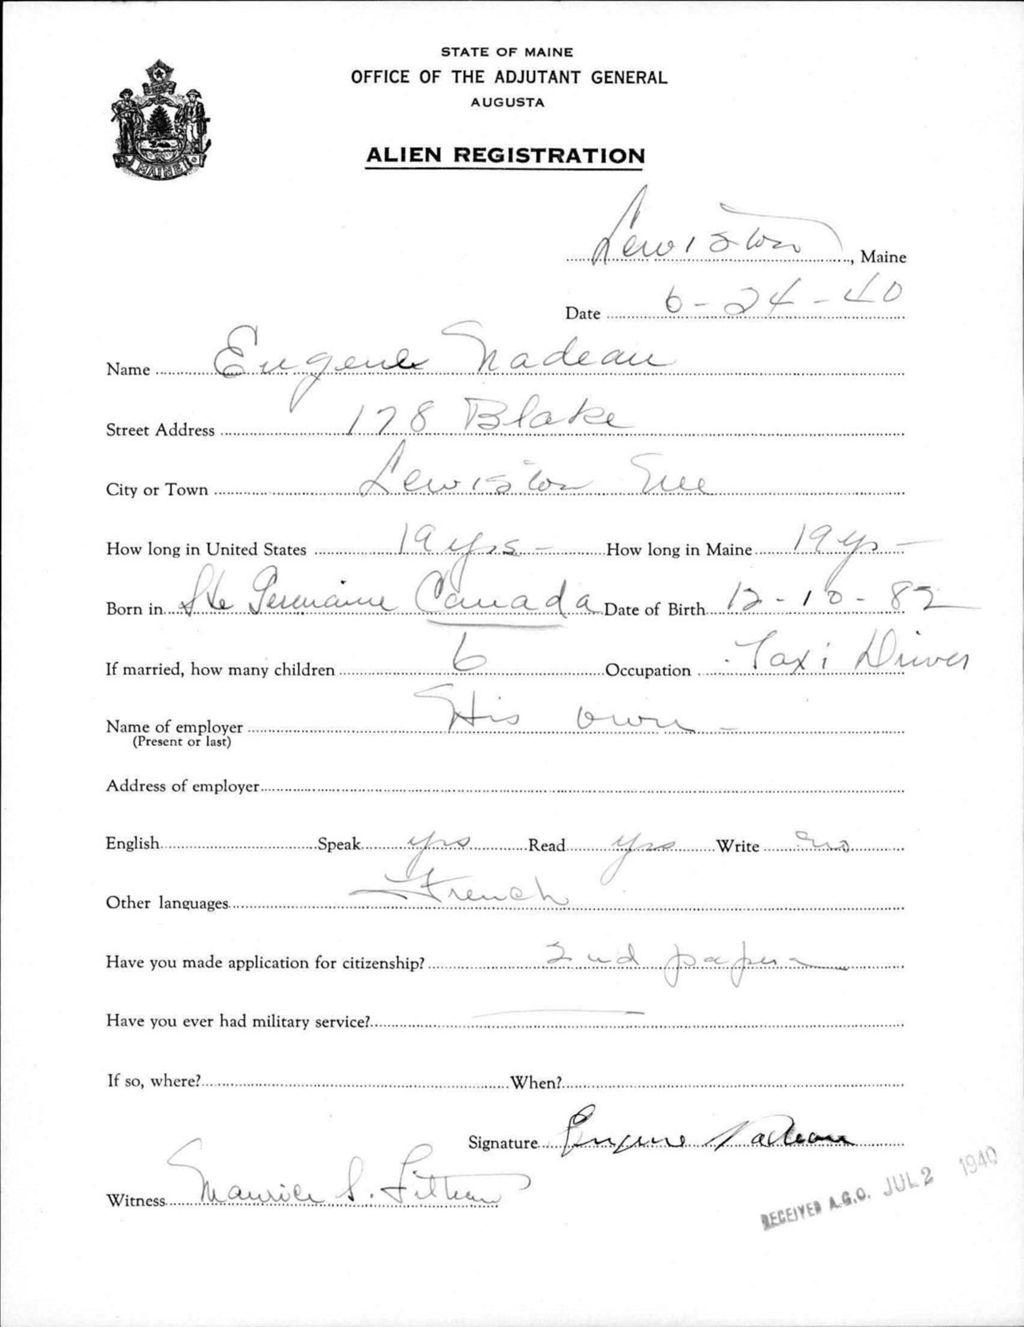 STATE OF MAINE
OFFICE OF THE ADJUTANT GENERAL
AUGUSTA
ALIEN REGISTRATION
MAINE
Lewiston, Maine
Date 6-24-40
Name Eugene Nadeau
Street Address 178 Blake
City or Town Lewiston Me
How long in United States 19 yrs - How long in Maine 19 yr -
Born in Ste Canada Date of Birth 12-10-82
If married, how many children 6 Occupation Taxi Driver
Name of employer His own -
(Present or last)
Address of employer
English Speak yes Read yes Write no
Other languages French
Have you made application for citizenship? 2nd paper
Have you ever had military service? —
If so, where? When?
Signature Eugene Nadeau
Witness Maurice S.
RECEIVED A.G.O. JUL 2 1940